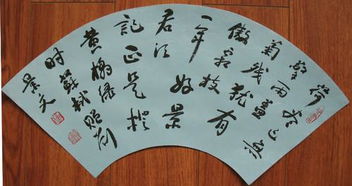 荷尽已无
擎雨盖
菊残犹有
傲霜枝
一年好景
君须
记正是橙
黄橘绿
时苏轼赠刘
景文